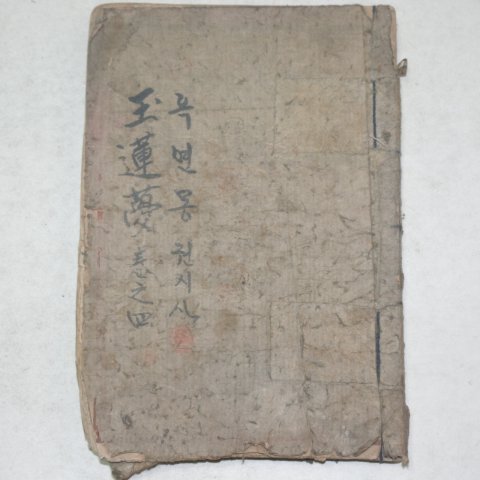 옥연몽 권지사
玉蓮夢 卷之四